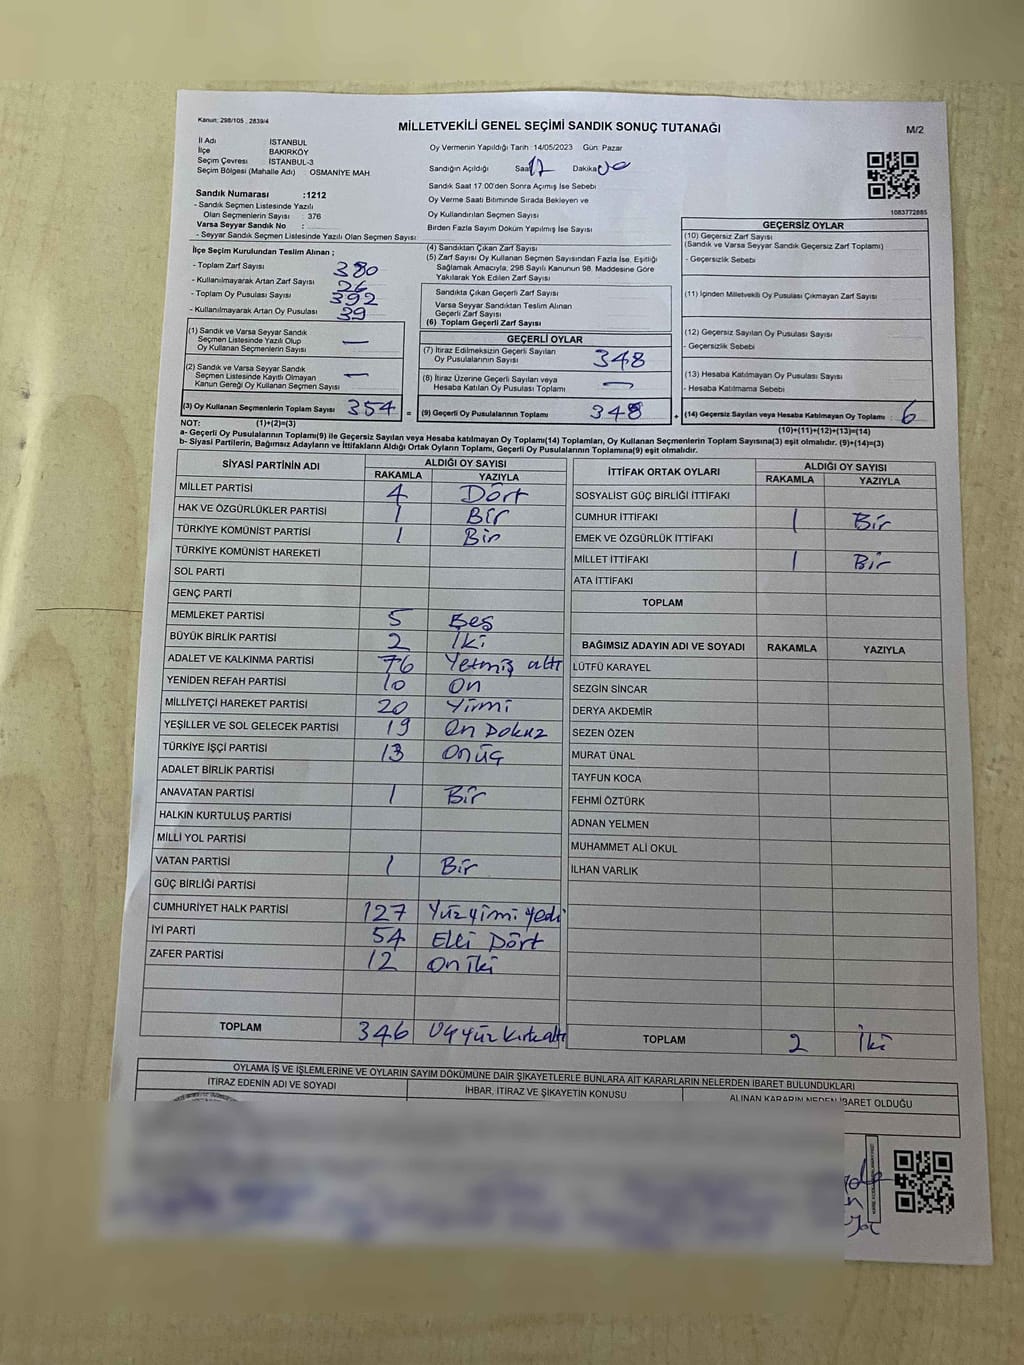 Kanun: 298/105 , 2839/4
MİLLETVEKİLİ GENEL SEÇİMİ SANDIK SONUÇ TUTANAĞI
M/2
İl Adı İSTANBUL
İlçe BAKIRKÖY
Seçim Çevresi İSTANBUL-3
Seçim Bölgesi (Mahalle Adı) OSMANİYE MAH.
Sandık Numarası :1212
- Sandık Seçmen Listesinde Yazılı
Olan Seçmenlerin Sayısı : 376
Varsa Seyyar Sandık No :
- Seyyar Sandık Seçmen Listesinde Yazılı Olan Seçmen Sayısı :
Oy Vermenin Yapıldığı Tarih : 14/05/2023 Gün: Pazar
Sandığın Açıldığı Saat 17 Dakika 00
Sandık Saat 17.00'den Sonra Açımış İse Sebebi
Oy Verme Saati Bitiminde Sırada Bekleyen ve
Oy Kullandırılan Seçmen Sayısı
Birden Fazla Sayım Döküm Yapılmış İse Sayısı
1083772885
İlçe Seçim Kurulundan Teslim Alınan ;
- Toplam Zarf Sayısı 380
- Kullanılmayarak Artan Zarf Sayısı 26
- Toplam Oy Pusulası Sayısı 392
- Kullanılmayarak Artan Oy Pusulası 39
(1) Sandık ve Varsa Seyyar Sandık
Seçmen Listesinde Yazılı Olup
Oy Kullanan Seçmenlerin Sayısı —
(2) Sandık ve Varsa Seyyar Sandık
Seçmen Listesinde Kayıtlı Olmayan
Kanun Gereği Oy Kullanan Seçmen Sayısı —
(3) Oy Kullanan Seçmenlerin Toplam Sayısı 354 =
(1)+(2)=(3)
(4) Sandıktan Çıkan Zarf Sayısı
(5) Zarf Sayısı Oy Kullanan Seçmen Sayısından Fazla İse, Eşitliği
Sağlamak Amacıyla, 298 Sayılı Kanunun 98. Maddesine Göre
Yakılarak Yok Edilen Zarf Sayısı
Sandıkta Çıkan Geçerli Zarf Sayısı
Varsa Seyyar Sandıktan Teslim Alınan
Geçerli Zarf Sayısı
(6) Toplam Geçerli Zarf Sayısı
GEÇERLİ OYLAR
(7) İtiraz Edilmeksizin Geçerli Sayılan
Oy Pusulalarının Sayısı 348
(8) İtiraz Üzerine Geçerli Sayılan veya
Hesaba Katılan Oy Pusulası Toplamı —
(9) Geçerli Oy Pusulalarının Toplamı 348 +
GEÇERSİZ OYLAR
(10) Geçersiz Zarf Sayısı
(Sandık ve Varsa Seyyar Sandık Geçersiz Zarf Toplamı)
- Geçersizlik Sebebi
(11) İçinden Milletvekili Oy Pusulası Çıkmayan Zarf Sayısı
(12) Geçersiz Sayılan Oy Pusulası Sayısı
- Geçersizlik Sebebi
(13) Hesaba Katılmayan Oy Pusulası Sayısı
- Hesaba Katılmama Sebebi
(14) Geçersiz Sayılan veya Hesaba Katılmayan Oy Toplamı : 6
(10)+(11)+(12)+(13)=(14)
NOT:
a- Geçerli Oy Pusulalarının Toplamı(9) ile Geçersiz Sayılan veya Hesaba katılmayan Oy Toplamı(14) Toplamları, Oy Kullanan Seçmenlerin Toplam Sayısına(3) eşit olmalıdır. (9)+(14)=(3)
b- Siyasi Partilerin, Bağımsız Adayların ve İttifakların Aldığı Ortak Oyların Toplamı, Geçerli Oy Pusulalarının Toplamına(9) eşit olmalıdır.
SİYASİ PARTİNİN ADI ALDIĞI OY SAYISI
RAKAMLA YAZIYLA
MİLLET PARTİSİ 4 Dört
HAK VE ÖZGÜRLÜKLER PARTİSİ 1 Bir
TÜRKİYE KOMÜNİST PARTİSİ 1 Bir
TÜRKİYE KOMÜNİST HAREKETİ
SOL PARTİ
GENÇ PARTİ
MEMLEKET PARTİSİ 5 Beş
BÜYÜK BİRLİK PARTİSİ 2 İki
ADALET VE KALKINMA PARTİSİ 76 Yetmiş altı
YENİDEN REFAH PARTİSİ 10 On
MİLLİYETÇİ HAREKET PARTİSİ 20 Yirmi
YEŞİLLER VE SOL GELECEK PARTİSİ 19 On Dokuz
TÜRKİYE İŞÇİ PARTİSİ 13 Onüç
ADALET BİRLİK PARTİSİ
ANAVATAN PARTİSİ 1 Bir
HALKIN KURTULUŞ PARTİSİ
MİLLİ YOL PARTİSİ
VATAN PARTİSİ 1 Bir
GÜÇ BİRLİĞİ PARTİSİ
CUMHURİYET HALK PARTİSİ 127 Yüzyirmi yedi
İYİ PARTİ 54 Elli Dört
ZAFER PARTİSİ 12 On iki
TOPLAM 346 Üçyüz kırkaltı
İTTİFAK ORTAK OYLARI ALDIĞI OY SAYISI
RAKAMLA YAZIYLA
SOSYALİST GÜÇ BİRLİĞİ İTTİFAKI
CUMHUR İTTİFAKI 1 Bir
EMEK VE ÖZGÜRLÜK İTTİFAKI
MİLLET İTTİFAKI 1 Bir
ATA İTTİFAKI
TOPLAM
BAĞIMSIZ ADAYIN ADI VE SOYADI RAKAMLA YAZIYLA
LÜTFÜ KARAYEL
SEZGİN SİNCAR
DERYA AKDEMİR
SEZEN ÖZEN
MURAT ÜNAL
TAYFUN KOCA
FEHMİ ÖZTÜRK
ADNAN YELMEN
MUHAMMET ALİ OKUL
İLHAN VARLIK
TOPLAM 2 İki
OYLAMA İŞ VE İŞLEMLERİNE VE OYLARIN SAYIM DÖKÜMÜNE DAİR ŞİKAYETLERLE BUNLARA AİT KARARLARIN NELERDEN İBARET BULUNDUKLARI
İTİRAZ EDENİN ADI VE SOYADI İHBAR, İTİRAZ VE ŞİKAYETİN KONUSU ALINAN KARARIN NEDEN İBARET OLDUĞU